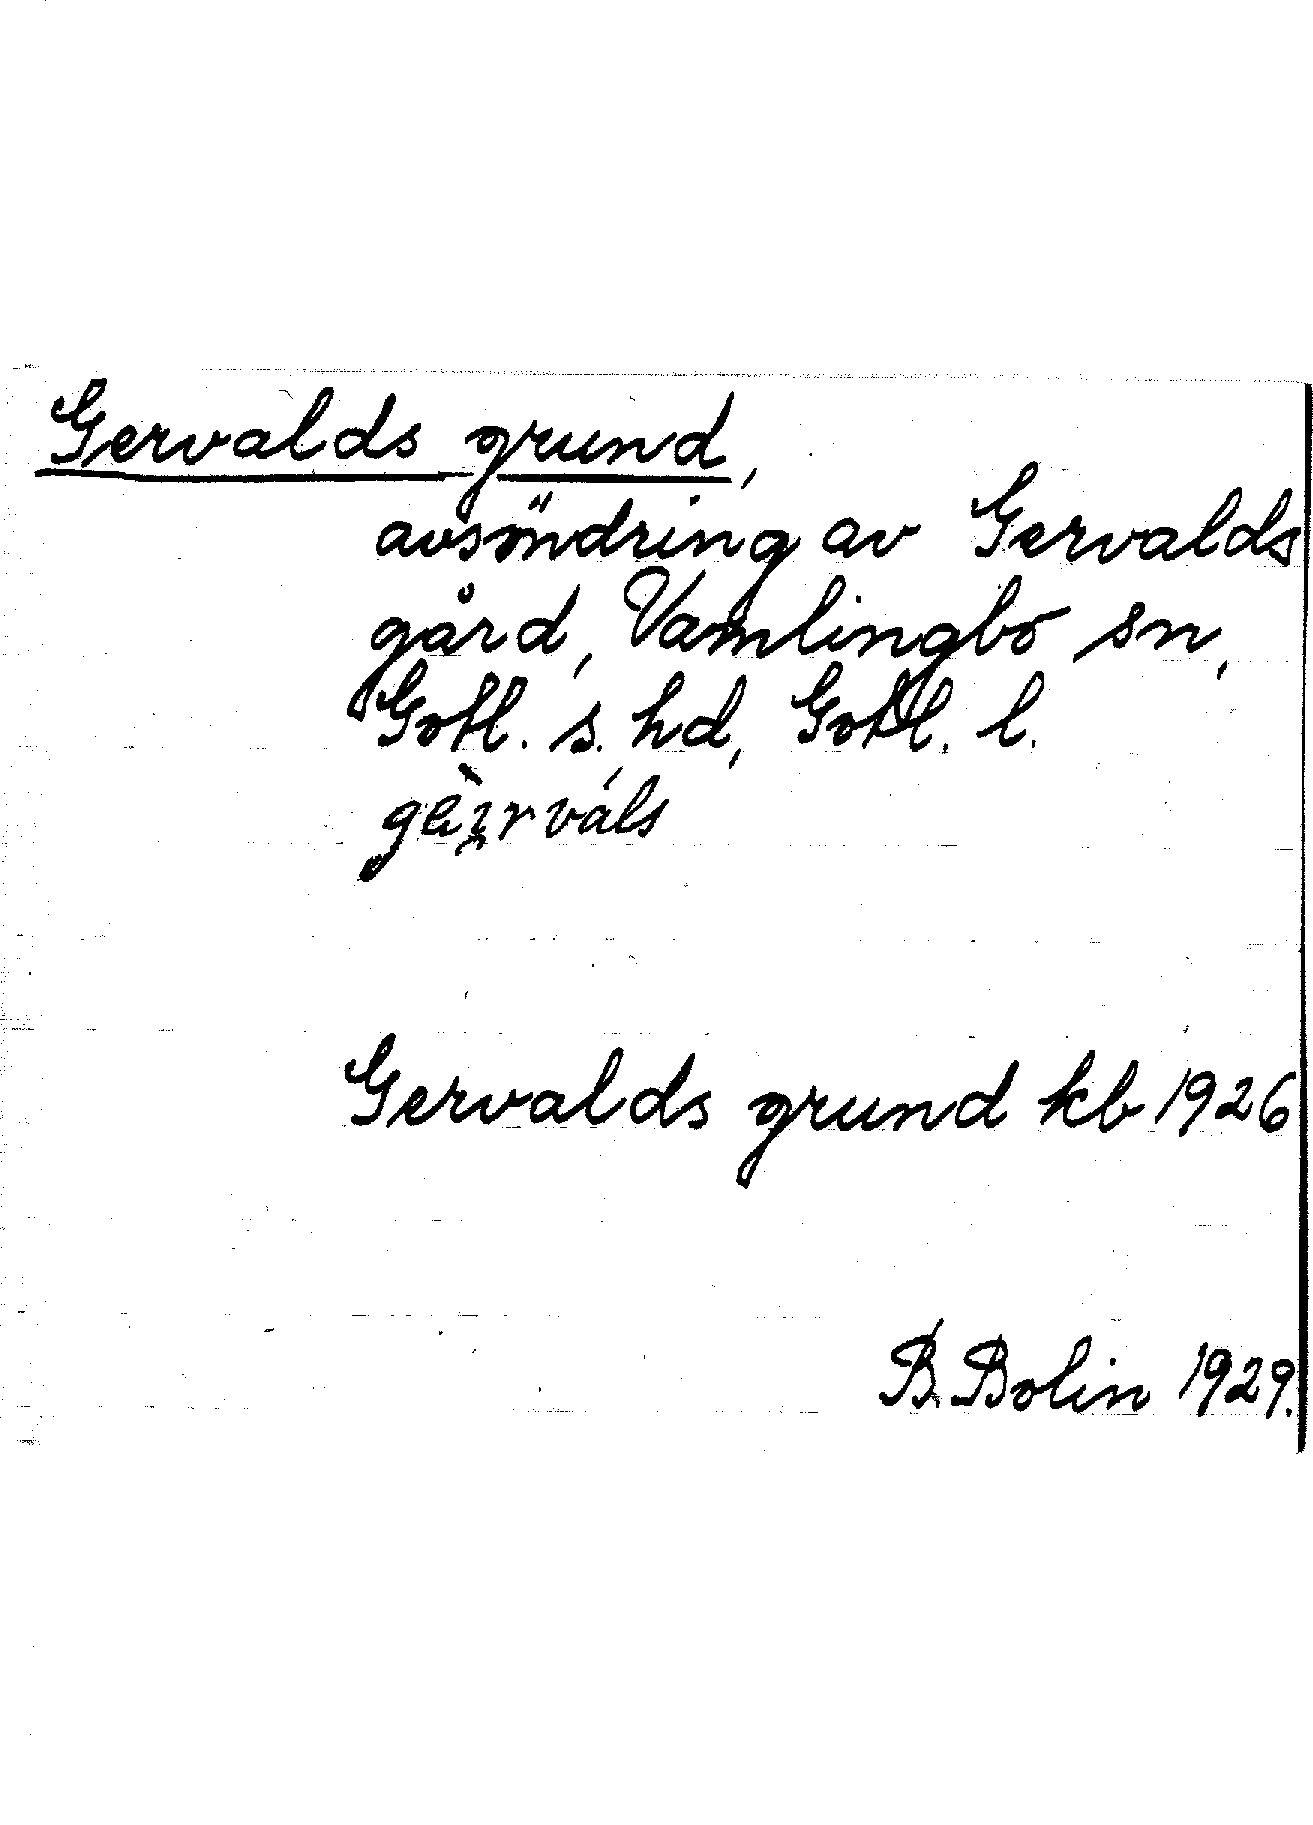 Gervalds grund,
avsöndring av Gervalds
gård, Vamlingbo sn,
Gotl. s. hd, Gotl. l.
Gervalds grund kb 1926
B. Bolin 1929.